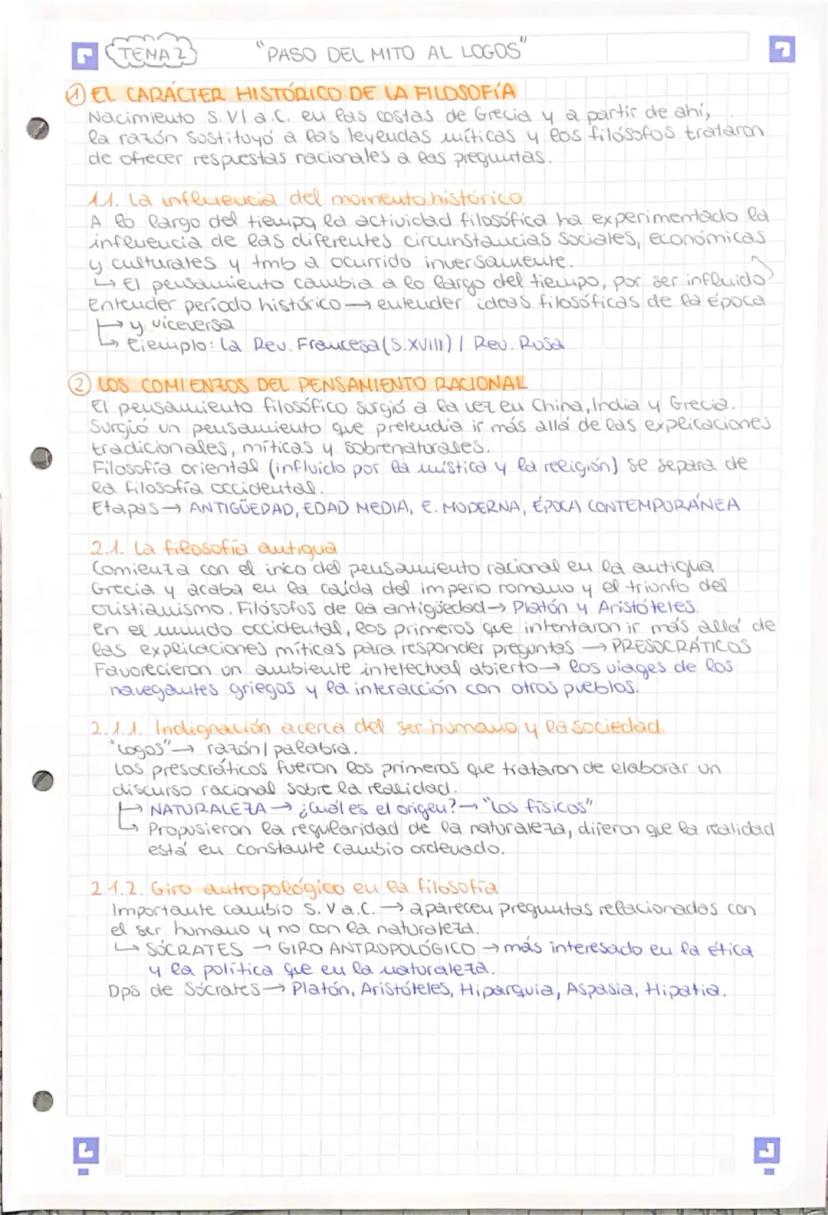 TEMA 2 "PASO DEL MITO AL LOGOS"
① EL CARÁCTER HISTÓRICO DE LA FILOSOFÍA
Nacimiento S.VI a.C. en las costas de Grecia y a partir de ahí,
la razón sustituyó a las leyendas míticas y los filósofos trataron
de ofrecer respuestas racionales a las preguntas.
1.1. La influencia del momento histórico
A lo largo del tiempo, la actividad filosófica ha experimentado la
influencia de las diferentes circunstancias sociales, económicas
y culturales y tmb a ocurrido inversamente.
↳ El pensamiento cambia a lo largo del tiempo, por ser influido
Entender período histórico → entender ideas filosóficas de la época
↳ y viceversa
↳ Ejemplo: La Rev. Francesa (S.XVIII) / Rev. Rusa
② LOS COMIENZOS DEL PENSAMIENTO RACIONAL
El pensamiento filosófico surgió a la vez en China, India y Grecia.
Surgió un pensamiento que pretendia ir más allá de las explicaciones
tradicionales, míticas y sobrenaturales.
Filosofía oriental (influido por la mística y la religión) se separa de
la filosofía occidental.
Etapas → ANTIGÜEDAD, EDAD MEDIA, E. MODERNA, ÉPOCA CONTEMPORÁNEA
2.1. La filosofía antigua
Comienza con el inico del pensamiento racional en la antigua
Grecia y acaba en la caída del imperio romano y el triunfo del
cristianismo. Filósofos de la antigüedad → Platón y Aristóteles.
En el mundo occidental, los primeros que intentaron ir más allá de
las explicaciones míticas para responder preguntas → PRESOCRÁTICOS
Favorecieron un ambiente intelectual abierto → los viages de los
navegantes griegos y la interacción con otros pueblos.
2.1.1. Indignación acerca del ser humano y la sociedad
"Logos" → razón / palabra.
Los presocráticos fueron los primeros que trataron de elaborar un
discurso racional sobre la realidad.
↳ NATURALEZA → ¿Cuál es el origen? → "Los físicos"
↳ Propusieron la regularidad de la naturaleza, dijeron que la realidad
está en constante cambio ordenado.
2.1.2. Giro antropológico en la filosofía
Importante cambio S. V a.C. → aparecen preguntas relacionadas con
el ser humano y no con la naturaleza.
↳ SÓCRATES → GIRO ANTROPOLÓGICO → más interesado en la ética
y la política que en la naturaleza.
Dps de Sócrates → Platón, Aristóteles, Hiparquia, Aspasia, Hipatia.